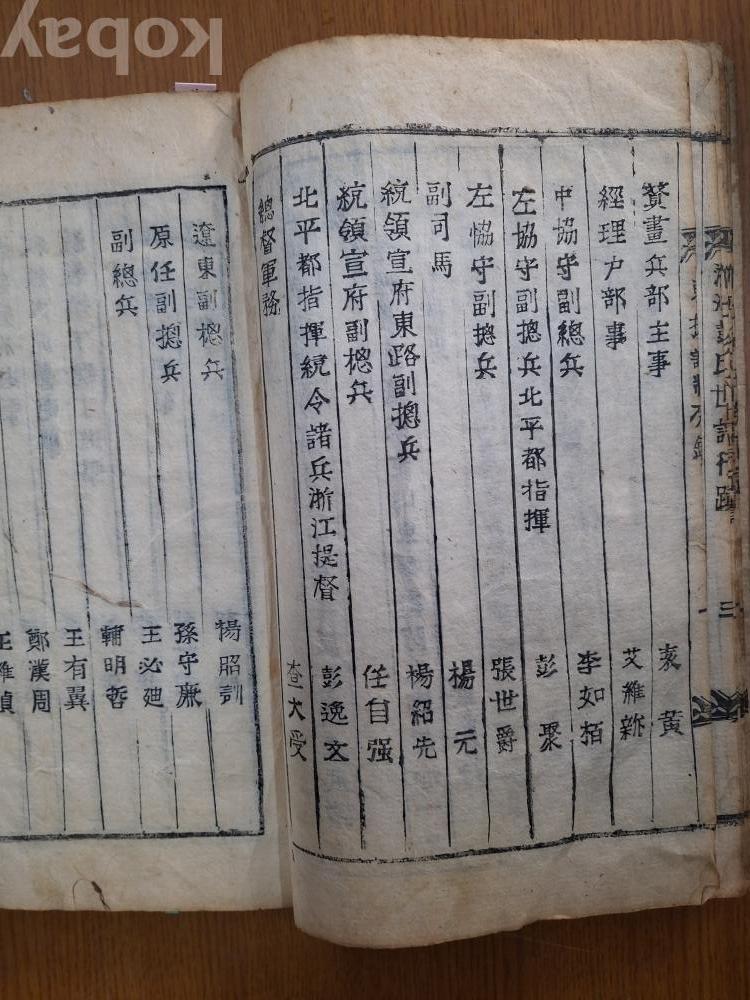 kobay
浙江彭氏世譜行蹟
三
贊畫兵部主事 袁黃
經理户部事 艾維新
中協守副總兵 李如栢
左協守副摠兵北平都指揮 彭聚
左恊守副摠兵 張世爵
副司馬 楊元
統領宣府東路副摠兵 楊紹先
統領宣府副摠兵 任自强
北平都指揮統令諸兵浙江提督 彭逸文
總督軍務 查大受
遼東副摠兵 楊昭訓
原任副摠兵 孫守廉
副總兵 王必迪
輔明哲
王有翼
鄭漢周
王維禎